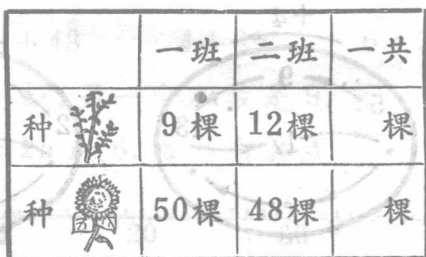 一班 二班 一共
种 9棵 12棵 棵
种 50棵 48棵 棵